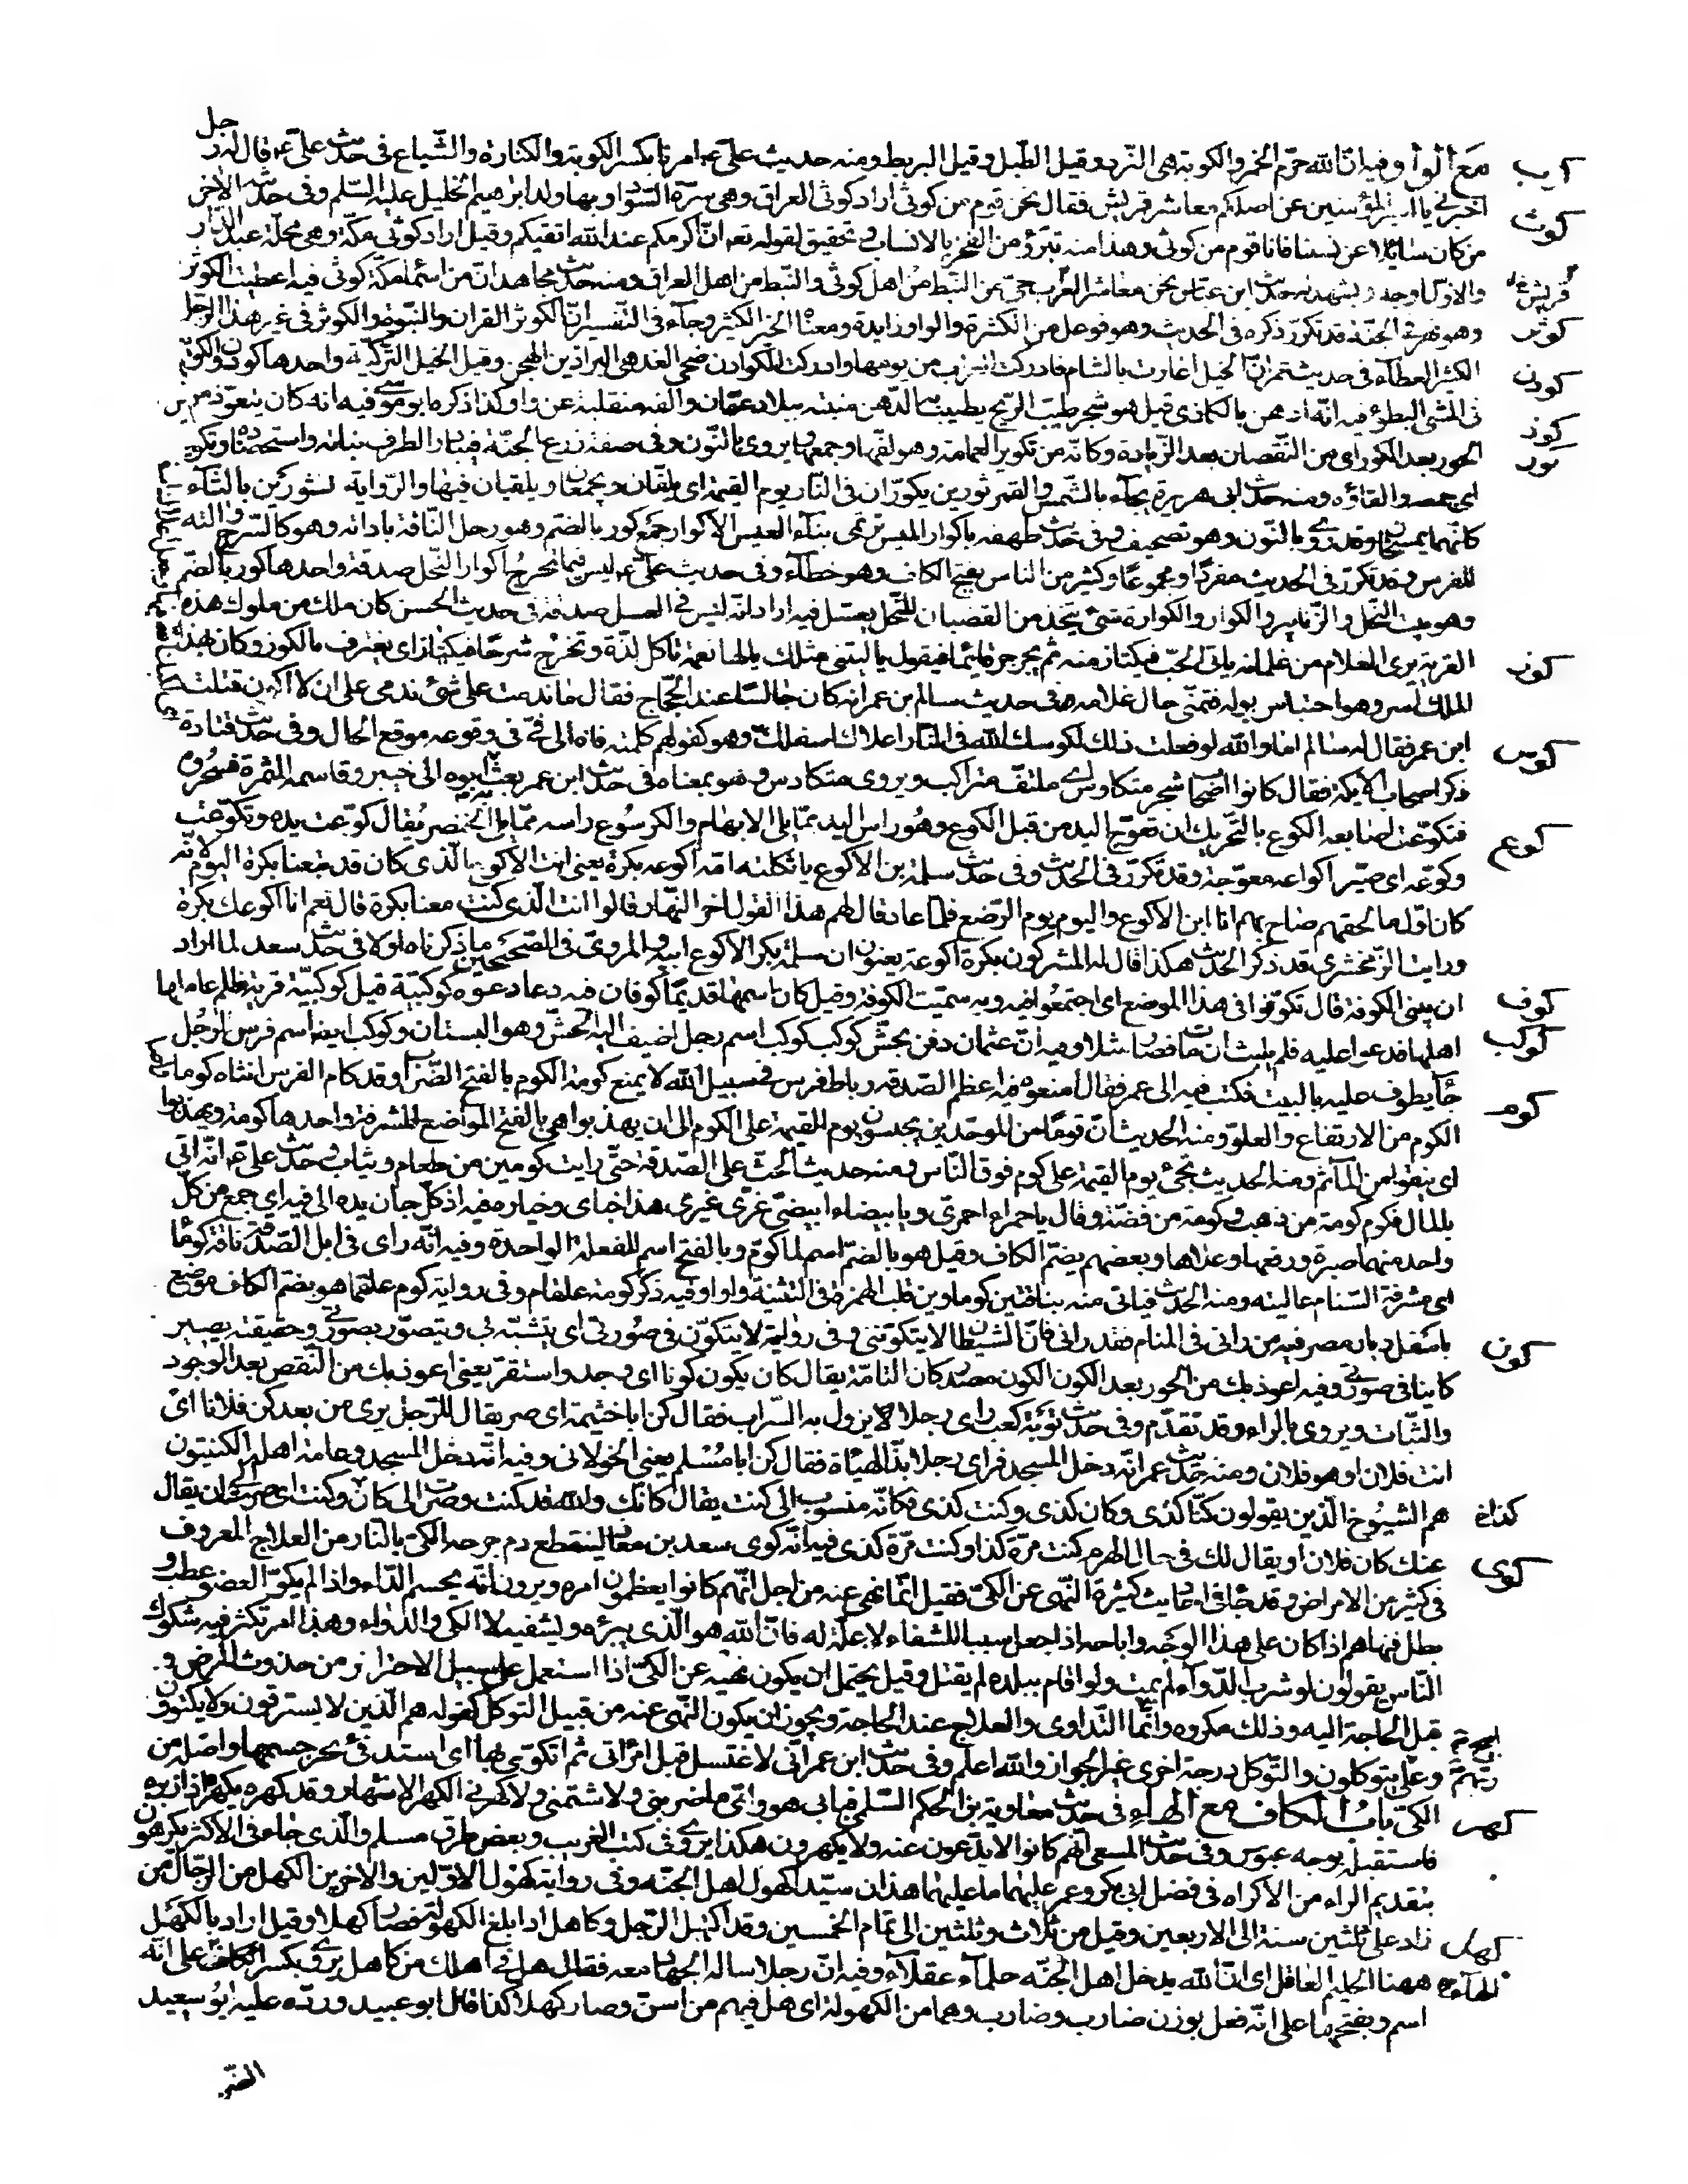 مع الواو فيه ان الله حرم الخمر والكوبة هى النرد وقيل الطبل وقيل البربط ومنه حديث على عم امرنا بكسر الكوبة والكنارة والشياع فى حديث على عم قال له رجل
اخبرنى يا امير المؤمنين عن اصلكم معاشر قريش فقال نحن قوم من كوثى اراد كوثى العراق وهى سرة السواد وبها ولد ابرهيم الخليل عليه السلم وفى حديثه الاخر
من كان سائلا عن نسبنا فانا قوم من كوثى وهذا منه تبرؤ من الفخر بالانساب وتحقيق لقوله تعه ان اكرمكم عند الله اتقيكم وقيل اراد كوثى مكة وهى محلة عبد الدار
والاول اوجه ويشهد له حديث ابن عباس نحن معاشر العرب حى من النبط من اهل كوثى والنبط من اهل العراق ومنه حديث مجاهد ان من اسماء مكة كوثى فيه اعطيت الكوثر
وهو نهر فى الجنة قد تكرر ذكره فى الحديث وهو فوعل من الكثرة والواو زايدة ومعناه الخير الكثير وجاء فى التفسير ان الكوثر القران والنبوة والكوثر فى غير هذا الرجل
الكثير العطاء فى حديث عمر ان الخيل اغارت بالشام فادركت العراب من يومها وادركت الكوادن ضحى الغد هى البراذين الهجن وقيل الخيل التركية واحدها كودن
فى المشى البطؤ فيه انه ادهن بالكاذى قيل هو شجر طيب الريح يطيب به الدهن منبته ببلاد عمان والفه منقلبة عن واو كذا ذكره ابو موسى فيه انه كان يتعوذ من
الحور بعد الكور اى من النقصان بعد الزيادة وكانه من تكوير العمامة وهو لفها وجمعها ويروى بالنون وفى صفة زرع الجنة فيبادر الطرف نباته واستحصاده وتكويره
اى جمعه والقاؤه ومنه حديث ابى هريرة يجاء بالشمس والقمر ثورين يكوران فى النار يوم القيمة اى يلفان ويجمعان ويلقيان فيها والرواية ثورين بالثاء
كانهما يمسخان وقد روى بالنون وهو تصحيف وفى حديث طهفه باكوار الميس ترتمى بنا العيس الاكوار جمع كور بالضم وهو رحل الناقة باداته وهو كالسرج والته
للفرس وقد تكرر فى الحديث مفردا ومجموعا وكثير من الناس يفتح الكاف وهو خطاء وفى حديث على عم ليس فيما تخرج اكوار النحل صدقة واحدها كور بالضم
وهو بيت النحل والزنابير والكوار والكوارة شئ يتخذ من القضبان للنحل يعسل فيه اراد انه ليس فى العسل صدقة فى حديث الحسن كان ملك من ملوك هذه
القرية يرى الغلام من غلمانه ياتى الحب فيكتاز منه ثم يجرجر قائما فيقول يا ليتنى مثلك يا لها نعمة تاكل لذة وتخرج سرحا فيكتاز اى يغترف بالكوز وكان بهذا
الملك اسر وهو احتباس بوله فتمنى حال غلامه فى حديث سالم بن عمر انه كان جالسا عند الحجاج فقال ما ندمت على شئ ندمى على ان لا اكون قتلت
ابن عمر فقال له سالم اما والله لو فعلت ذلك لكوسك الله فى النار اعلاك اسفلك وهو كقولهم كلمته فاه الى فى فى وقوعه موقع الحال وفى حديث قتادة
ذكر اصحاب الايكة فقال كانوا اصحاب شجر متكاوس اى ملتف متراكب ويروى متكادس وهو بمعناه فى حديث ابن عمر بعث به ابوه الى خيبر وقاسمه الثمرة فسحروه
فتكوعت اصابعه الكوع بالتحريك ان تعوج اليد من قبل الكوع وهو راس اليد مما يلى الابهام والكرسوع راسه مما يلى الخنصر يقال كوعت يده وتكوعت
وكوعه اى صير اكواعه معوجة وقد تكرر فى الحديث وفى حديث سلمة بن الاكوع يا ثكلته امه اكوعه بكرة يعنى انت الاكوع الذى كان قد تبعنا بكرة اليوم لانه
كان اول ما لحقهم صاح بهم انا ابن الاكوع واليوم يوم الرضع فلما عاد قال لهم هذا القول اخر النهار قالوا انت الذى كنت معنا بكرة قال نعم انا اكوعك بكرة
ورايت الزمخشرى قد ذكر الحديث هكذا قال له المشركون بكرة اكوعة يعنون ان سلمة بكر الاكوع ابيه والمروى فى الصحيحين ما ذكرناه اولا فى حديث سعد لما اراد
ان يبنى الكوفة قال تكوفوا فى هذا الموضع اى اجتمعوا فيه وبه سميت الكوفة وقيل كان اسمها قديما كوفان فيه دعا دعوة كوكبية قيل كوكبية قرية ظلم عاملها
اهلها فدعوا عليه فلم يلبث ان مات فصار مثلا وفيه ان عثمان دفن بحش كوكب كوكب اسم رجل اضيف اليه الحش وهو البستان وكوكب ايضا اسم فرس لرجل
جاء يطوف عليه بالبيت فكتب فيه الى عمر فقال امنعوه فيه اعظم الصدقة رباط فرس فى سبيل الله لا يمنع كومة الكوم بالفتح الضراب وقد كام الفرس انثاه كوما
الكوم من الارتفاع والعلو ومنه الحديث ان قوما من الموحدين يحبسون يوم القيمة على الكوم الى ان يهذبوا هى بالفتح المواضع المشرفة واحدها كومة ويهذبوا
اى ينقوا من المآثم ومنه الحديث نجئ يوم القيمة على كوم فوق الناس ومنه حديث الحث على الصدقة حتى رايت كومين من طعام وثياب وحديث على عم انه اتى
بالمال فكوم كومة من ذهب وكومة من فضة وقال يا حمراء احمرى ويا بيضاء ابيضى غرى غيرى هذا جناى وخياره فيه اذ كل جان يده الى فيه اى جمع من كل
واحد منهما صبرة ورفعها وعلاها وبعضهم يضم الكاف وقيل هو بالضم اسم لما كوم وبالفتح اسم للفعلة الواحدة وفيه انه راى فى ابل الصدقة ناقة كوماء
اى مشرفة السنام عاليته ومنه الحديث فياتى منه بناقتين كوماوين قلب الهمزة فى التثنية واوا وفيه ذكر كومة علقام وفى رواية كوم علقما هو بضم الكاف موضع
باسفل ديار مصر فيه من رانى فى المنام فقد رانى فان الشيطان لا يتكوننى وفى رواية لا يتكون فى صورتى اى يتشبه بى ويتصور بصورتى وحقيقته يصير
كاينا فى صورتى وفيه اعوذ بك من الحور بعد الكون الكون مصدر كان التامة يقال كان يكون كونا اى وجد واستقر يعنى اعوذ بك من النقص بعد الوجود
والثبات ويروى بالراء وقد تقدم وفى حديث توبة كعب راى رجلا لا يزول به السراب فقال كن ابا خثيمة اى صر يقال للرجل يرى من بعد كن فلانا اى
انت فلان او هو فلان ومنه حديث عمر انه دخل المسجد فراى رجلا بذ الهيأة فقال كن ابا مسلم يعنى الخولانى وفيه انه دخل المسجد وعامة اهله الكنتيون
هم الشيوخ الذين يقولون كنا كذى وكان كذى وكنت كذى فكانه منسوب الى كنت يقال كانك والله قد كنت وصرت الى كان وكنت اى صرت الى ان يقال
عنك كان فلان او يقال لك فى حال الهرم كنت مرة كذا وكنت مرة كذى فيه انه كوى سعد بن معاذ لينقطع دم جرحه الكى بالنار من العلاج المعروف
فى كثير من الامراض وقد جاء فى احاديث كثيرة النهى عن الكى فقيل انما نهى عنه من اجل انهم كانوا يعظمون امره ويرون انه يحسم الداء واذا لم يكو العضو عطب و
بطل فنهاهم اذا كان على هذا الوجه واباحه اذا جعل سببا للشفاء لا علة له فان الله هو الذى يبرئه ويشفيه لا الكى والدواء وهذا امر تكثر فيه شكوك
الناس يقولون لو شرب الدواء لم يمت ولو اقام ببلده لم يقتل وقيل يحتمل ان يكون نهيه عن الكى اذا استعمل على سبيل الاحتراز من حدوث المرض و
قبل الحاجة اليه وذلك مكروه وانما التداوى والعلاج عند الحاجة ويجوز ان يكون النهى عنه من قبيل التوكل كقوله هم الذين لا يسترقون ولا يكتوون
وعلى ربهم يتوكلون والتوكل درجة اخرى غير الجواز والله اعلم وفى حديث ابن عمر انى لاغتسل قبل امراتى ثم اتكوى بها اى استدفئ بحر جسمها واصله من
الكى باب الكاف مع الهاء فى حديث معاوية بن الحكم السلمى فبابى هو وامى ما ضربنى ولا شتمنى ولا كهرنى الكهر الانتهار وقد كهره يكهره اذا زبره
فاستقبله بوجه عبوس وفى حديث المسعى انهم كانوا لا يدعون عنه ولا يكهرون هكذا يروى فى كتب الغريب وبعض طرق مسلم والذى جاء فى الاكثر يكرهون
بتقديم الراء من الاكراه فى فضل ابى بكر وعمر عليهما ما عليهما هذان سيدا كهول اهل الجنة وفى رواية كهول الاولين والاخرين الكهل من الرجال من
زاد على ثلثين سنة الى الاربعين وقيل من ثلاث وثلثين الى تمام الخمسين وقد اكتهل الرجل وكاهل اذا بلغ الكهولة فصار كهلا وقيل اراد بالكهل
ههنا الحليم العاقل اى ان الله يدخل اهل الجنة حلماء عقلاء وفيه ان رجلا ساله الجهاد معه فقال هل فى اهلك من كاهل يروى بكسر الهاء على انه
اسم وبفتحها على انه فعل بوزن ضارب وضارب وهما من الكهولة اى هل فيهم من اسن وصار كهلا كذا قال ابو عبيد ورده عليه ابو سعيد
كوث
كوثر
كودن
كوذ
كور
كوز
كوس
كوع
كوف
كوكب
كوم
كون
كوى
كهر
كهل